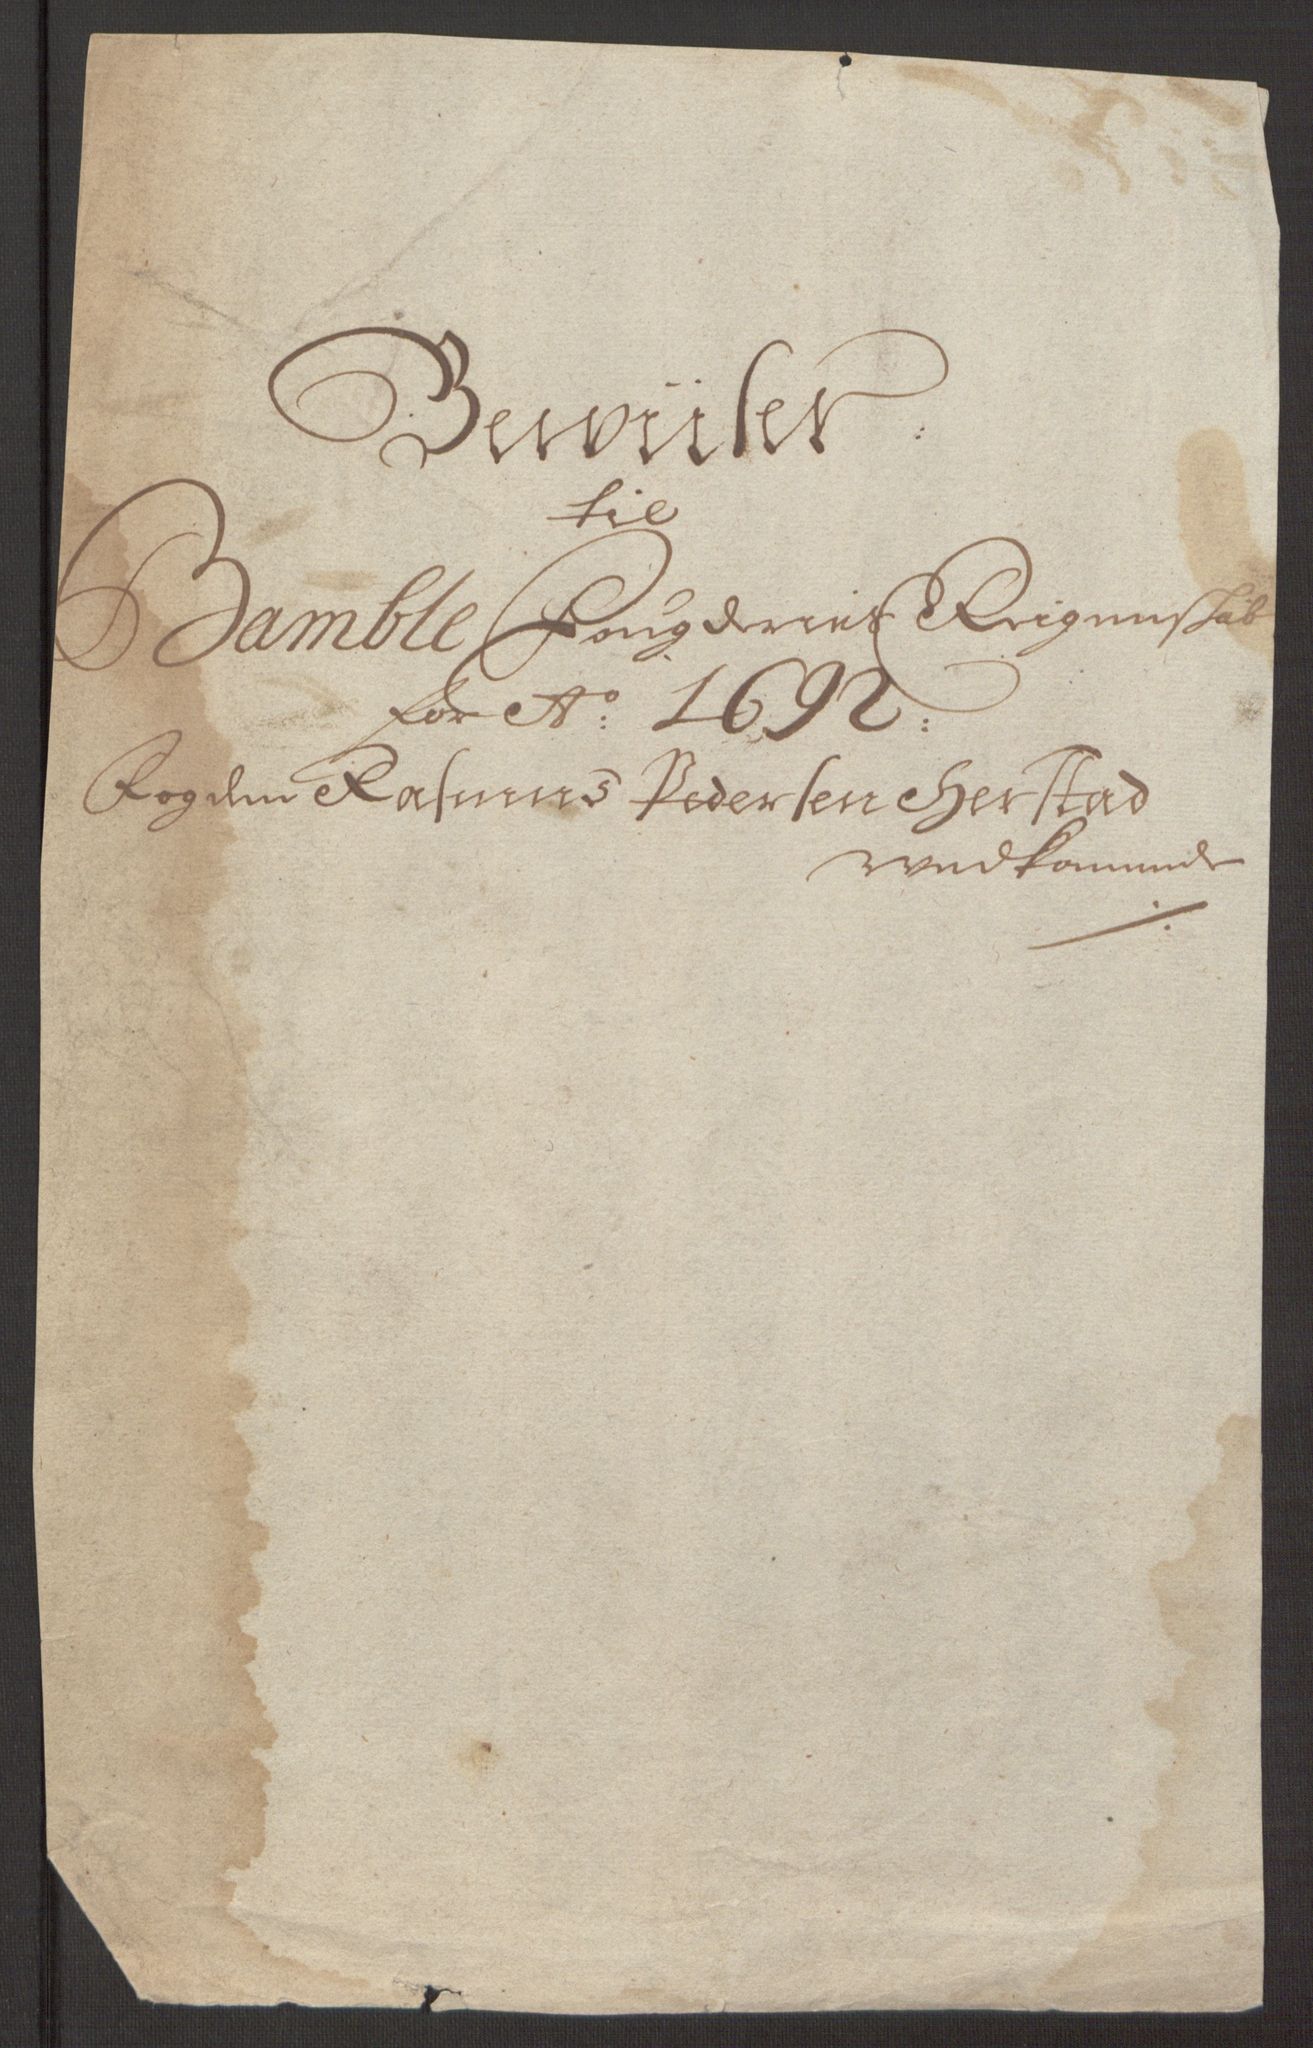 Bewiiser:
til
Bamble Fougderies Reigenskab
for Ao: 1692:
Fogden Rasmus Pedersen Herstad
vedkommende